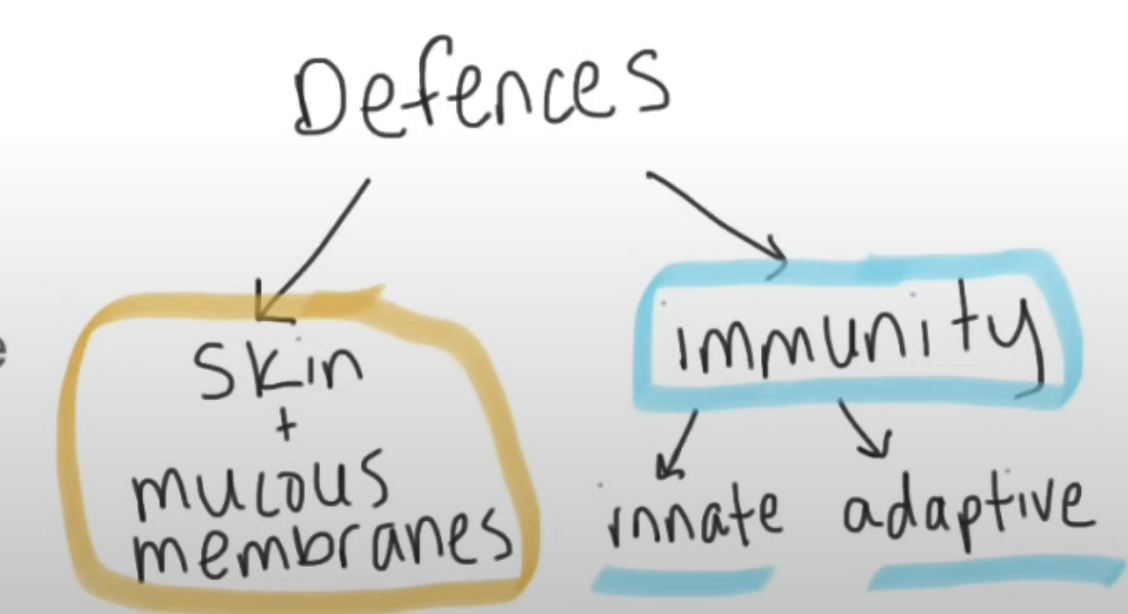 Defences
skin
+
mucous
membranes
immunity
innate
adaptive